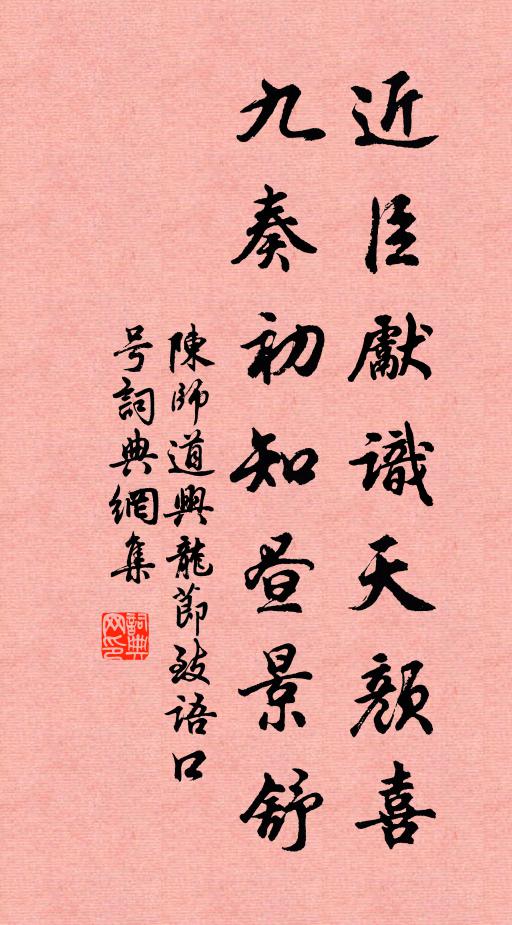 近臣獻識天顏喜
九奏初知昼景舒
陳師道興龍節致語口
号詞典網集
詞典
网印